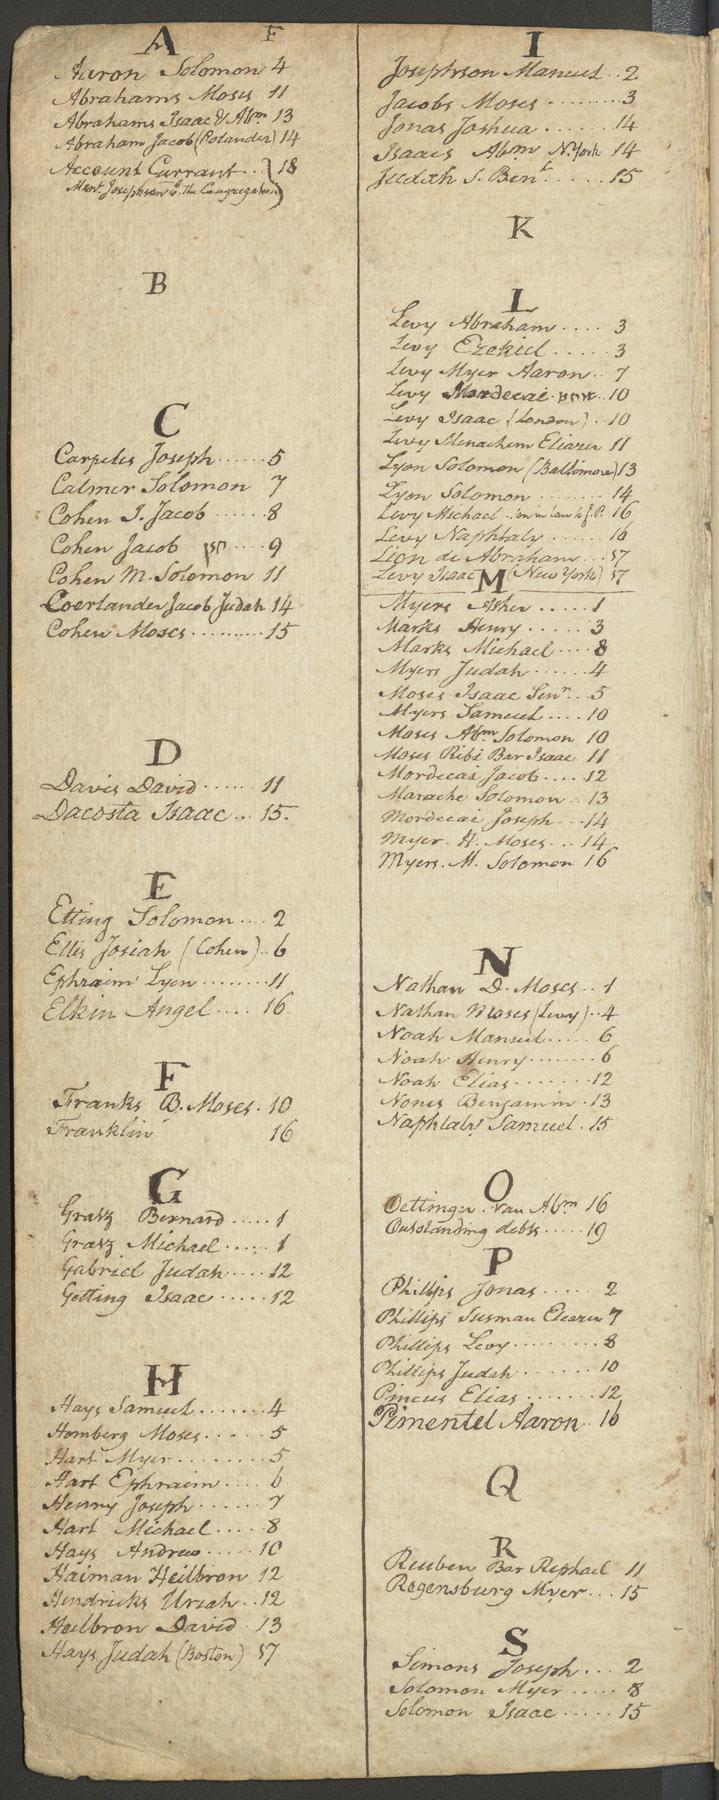 A F
Aaron Solomon 4
Abrahams Moses 11
Abrahams Isaac & Abm 13
Abraham Jacob (Polander) 14
Account Currant .. } 18
Manl. Josephson & the Congregation
B
C
Carpeles Joseph ...... 5
Calmer Solomon 7
Cohen I. Jacob ...... 8
Cohen Jacob כהן .... 9
Cohen M. Solomon 11
Coerlander Jacob Judah 14
Cohen Moses .......... 15
D
Davis David ...... 11
Dacosta Isaac ... 15.
E
Etting Solomon .... 2
Ellis Josiah (Cohen) .. 6
Ephraim Lyon ........ 11
Elkin Angel .... 16
F
Franks B. Moses . 10
Franklin 16
G
Gratz Bernard ..... 1
Gratz Michael ...... 1
Gabriel Judah .... 12
Getting Isaac ..... 12
H
Hays Samuel ....... 4
Homberg Moses ...... 5
Hart Myer ......... 5
Hart Ephraim .... 6
Henry Joseph ...... 7
Hart Michael ..... 8
Hays Andrew ..... 10
Haiman Heilbron 12
Hendricks Uriah .. 12
Heilbron David 13
Hays Judah (Boston) 17
I
Josephson Manuel .. 2
Jacobs Moses ......... 3
Jonas Joshua ...... 14
Isaacs Abm N. York 14
Judah S. Benj. ...... 15
K
L
Levy Abraham .... 3
Levy Ezekiel ..... 3
Levy Myer Aaron .. 7
Levy Mordecai 10
Levy Isaac (London) .. 10
Levy Menachem Eliazer 11
Lyon Solomon (Baltimore) 13
Lyon Solomon ........ 14
Levy Michael son in law to J.P. 16
Levy Naphtaly ...... 16
Lion de Abraham ... 17
Levy Isaac (New York) 17
M
Myers Asher ..... 1
Marks Henry ..... 3
Marks Michael .... 8
Myers Judah ...... 4
Moses Isaac Senr .. 5
Myers Samuel .... 10
Moses Abm Solomon 10
Moses Ribi Bar Isaac 11
Mordecai Jacob ..... 12
Marache Solomon .. 13
Mordecai Joseph ... 14
Myer. H. Moses ... 14
Myers. M. Solomon 16
N
Nathan D. Moses .. 1
Nathan Moses (Levy) .. 4
Noah Manuel ..... 6
Noah Henry ........ 6
Noah Elias ....... 12
Nones Benjamin . 13
Naphtaly Samuel . 15
O
Oettinger. Van Abm 16
Outstanding debts ..... 19
P
Phillips Jonas ..... 2
Phillips Susman Eleazer 7
Phillips Levy ......... 8
Phillips Judah ....... 10
Pincus Elias ....... 12
Pimentel Aaron .. 16
Q
R
Reuben Bar Rephael 11
Regensburg Myer ... 15
S
Simons Joseph ... 2
Solomon Myer ..... 8
Solomon Isaac ..... 15